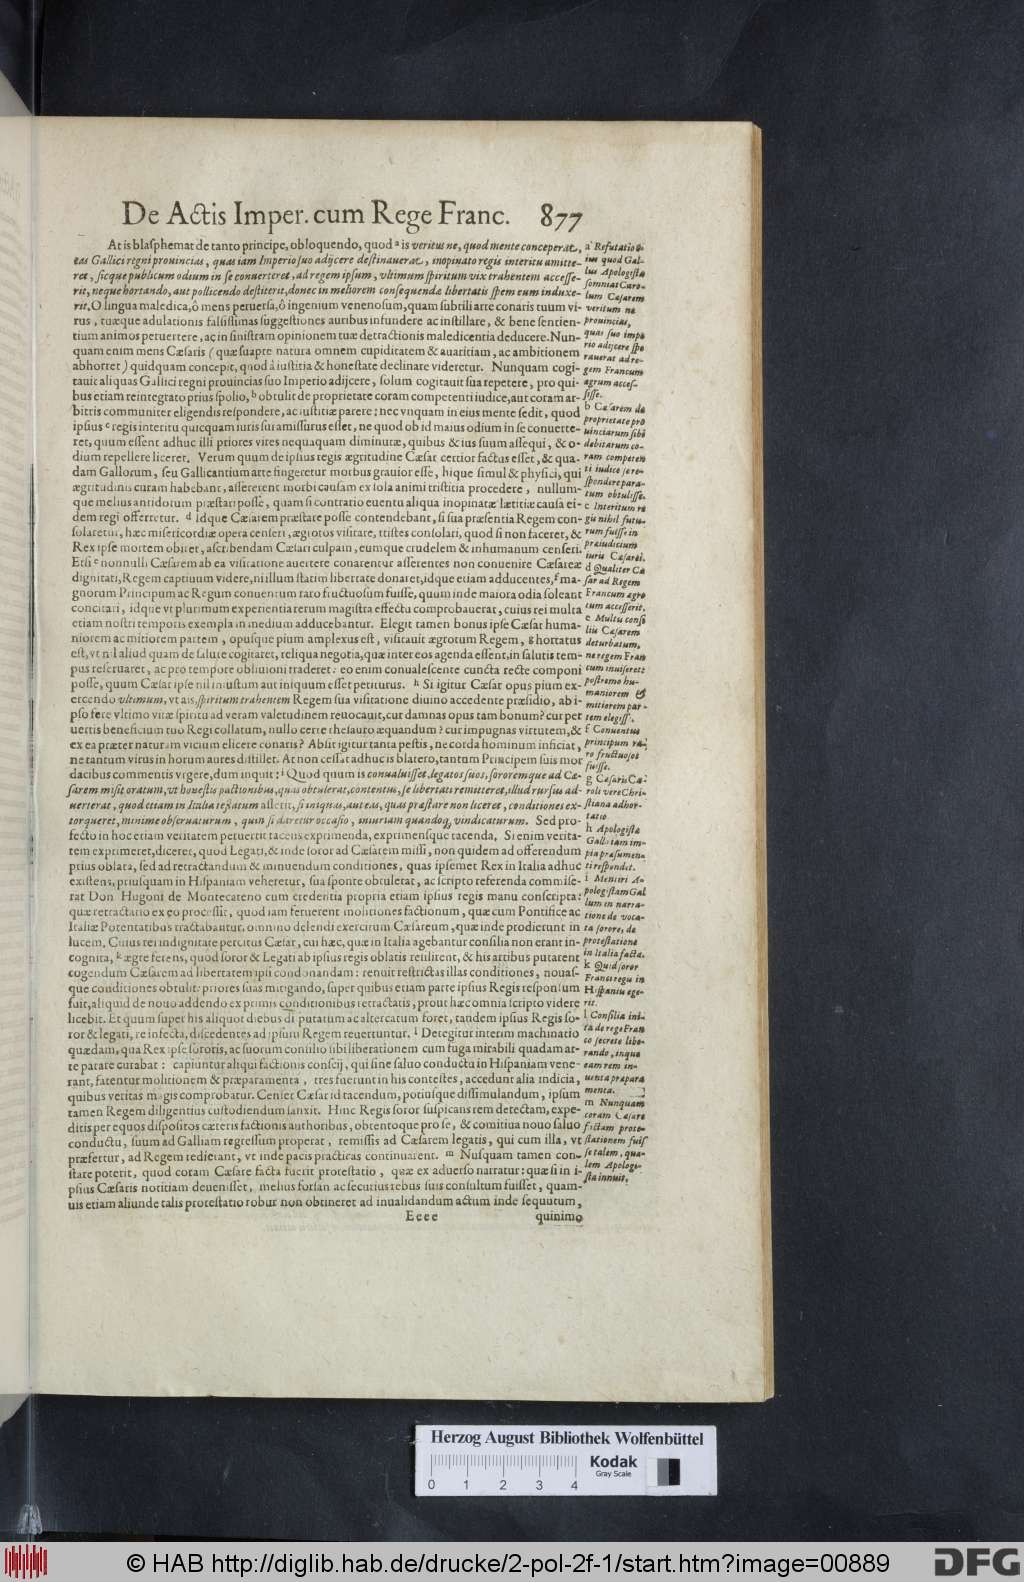 De Actis Imper. cum Rege Franc. 877
At is blasphemat de tanto principe, obloquendo, quod ᵃ is veritus ne, quod mente conceperat,
eas Gallici regni prouincias, quas iam Imperio suo adijcere destinauerat, inopinato regis interitu amitte-
ret, sicque publicum odium in se conuerteret, ad regem ipsum, vltimum spiritum vix trahentem accesse-
rit, neque hortando, aut pollicendo destiterit, donec in meliorem consequendæ libertatis spem eum induxe-
rit, O lingua maledica, ô mens peruersa, ô ingenium venenosum, quam subtili arte conaris tuum vi-
rus, tuæque adulationis falsissimas suggestiones auribus infundere ac instillare, & bene sentien-
tium animos peruertere, ac in sinistram opinionem tuæ detractionis maledicentia deducere. Nun-
quam enim mens Cæsaris (quæ suapte natura omnem cupiditatem & auaritiam, ac ambitionem
abhorret) quidquam concepit, quod à iustitia & honestate declinare videretur. Nunquam cogi-
tauit aliquas Gallici regni prouincias suo Imperio adijcere, solum cogitauit sua repetere, pro qui-
bus etiam reintegrato prius spolio, ᵇ obtulit de proprietate coram competenti iudice, aut coram ar-
bitris communiter eligendis respondere, ac iustitiæ parere: nec vnquam in eius mente sedit, quod
ipsius ᶜ regis interitu quicquam iuris sui amissurus esset, ne quod ob id maius odium in se conuerte-
ret, quum essent adhuc illi priores vires nequaquam diminutæ, quibus & ius suum assequi, & o-
dium repellere liceret. Verum quum de ipsius regis ægritudine Cæsar certior factus esset, & qua-
dam Gallorum, seu Gallicantium arte fingeretur morbus grauior esse, hique simul & physici, qui
ægritudinis curam habebant, assererent morbi causam ex sola animi tristitia procedere, nullum-
que melius antidotum præstari posse, quam si contrario euentu aliqua inopinatæ lætitiæ causa ei-
dem regi offerretur. ᵈ Idque Cæsarem præstare posse contendebant, si sua præsentia Regem con-
solaretur, hæc misericordiæ opera censeri, ægrotos visitare, tristes consolari, quod si non faceret, &
Rex ipse mortem obiret, ascribendam Cæsari culpam, eumque crudelem & inhumanum censeri.
Etsi ᵉ nonnulli Cæsarem ab ea visitatione auertere conarentur asserentes non conuenire Cæsareæ
dignitati, Regem captiuum videre, ni illum statim libertate donaret, idque etiam adducentes, ᶠ ma-
gnorum Principum ac Regum conuentum raro fructuosum fuisse, quum inde maiora odia soleant
concitari, idque vt plurimum experientia rerum magistra effectu comprobauerat, cuius rei multa
etiam nostri temporis exempla in medium adducebantur. Elegit tamen bonus ipse Cæsar huma-
niorem ac mitiorem partem, opusque pium amplexus est, visitauit ægrotum Regem, g hortatus
est, vt nil aliud quam de salute cogitaret, reliqua negotia, quæ inter eos agenda essent, in salutis tem-
pus reseruaret, ac pro tempore obliuioni traderet: eo enim conualescente cuncta recte componi
posse, quum Cæsar ipse nil iniustum aut iniquum esset petiturus. ʰ Si igitur Cæsar opus pium ex-
ercendo vltimum, vt ais, spiritum trahentem Regem sua visitatione diuino accedente præsidio, ab i-
pso fere vltimo vitæ spiritu ad veram valetudinem reuocauit, cur damnas opus tam bonum? cur per
uertis beneficium tuo Regi collatum, nullo certe thesauro æquandum? cur impugnas virtutem, &
ex ea præter naturam vicium elicere conaris? Absit igitur tanta pestis, ne corda hominum inficiat,
ne tantum virus in horum aures distillet. At non cessat adhuc is blatero, tantum Principem suis mor
dacibus commentis vrgere, dum inquit: ⁱ Quod quum is conualuisset, legatos suos, sororemque ad Cæ-
sarem misit oratum, vt honestis pactionibus, quas obtulerat, contentus, se libertati remitteret, illud rursus ad-
uerterat, quod etiam in Italia testatum asserit, si iniquas, aut eas, quas præstare non liceret, conditiones ex-
torqueret, minime obseruaturum, quin si daretur occasio, iniuriam quandoq; vindicaturum. Sed pro-
fecto in hoc etiam veritatem peruertit tacens exprimenda, exprimensque tacenda. Si enim verita-
tem exprimeret, diceret, quod Legati, & inde soror ad Cæsarem missi, non quidem ad offerendum
prius oblata, sed ad retractandum & minuendum conditiones, quas ipsemet Rex in Italia adhuc
existens, priusquam in Hispaniam veheretur, sua sponte obtulerat, ac scripto referenda commise-
rat Don Hugoni de Montecateno cum credentia propria etiam ipsius regis manu conscripta:
quæ retractatio ex eo processit, quod iam feruerent molitiones factionum, quæ cum Pontifice ac
Italiæ Potentatibus tractabantur, omnino delendi exercitum Cæsareum, quæ inde prodierunt in
lucem. Cuius rei indignitate percitus Cæsar, cui hæc, quæ in Italia agebantur consilia non erant in-
cognita, ᵏ ægre ferens, quod soror & Legati ab ipsius regis oblatis resilirent, & his artibus putarent
cogendum Cæsarem ad libertatem ipsi condonandam: renuit restrictas illas conditiones, nouas-
que conditiones obtulit priores suas mitigando, super quibus etiam parte ipsius Regis responsum
fuit, aliquid de nouo addendo ex primis conditionibus retractatis, prout hæc omnia scripto videre
licebit. Et quum super his aliquot diebus disputatum ac altercatum foret, tandem ipsius Regis so-
ror & legati, re infecta, discedentes ad ipsum Regem reuertuntur. ˡ Detegitur interim machinatio
quædam, qua Rex ipse sororis, ac suorum consilio sibi liberationem cum fuga mirabili quadam ar-
te parare curabat: capiuntur aliqui factionis conscij, qui sine saluo conductu in Hispaniam vene-
rant, fatentur molitionem & præparamenta, tres fuerunt in his contestes, accedunt alia indicia,
quibus veritas magis comprobatur. Censet Cæsar id tacendum, potiusque dissimulandum, ipsum
tamen Regem diligentius custodiendum sanxit. Hinc Regis soror suspicans rem detectam, expe-
ditis per equos dispositos cæteris factionis authoribus, obtentoque pro se, & comitiua nouo saluo
conductu, suum ad Galliam regressum properat, remissis ad Cæsarem legatis, qui cum illa, vt
præfertur, ad Regem redierant, vt inde pacis practicas continuarent. ᵐ Nusquam tamen con-
stare poterit, quod coram Cæsare facta fuerit protestatio, quæ ex aduerso narratur: quæ si in i-
psius Cæsaris notitiam deuenisset, melius forsan ac securius rebus suis consultum fuisset, quam-
uis etiam aliunde talis protestatio robur non obtineret ad inualidandum actum inde sequutum,
Eeee quinimo
a Refutatio e-
ius quod Gal-
lus Apologista
somniat Caro-
lum Cæsarem
veritum ne
prouincias,
quas suo impe
rio adijcere spe
rauerat ad re-
gem Francum
agrum acces-
sisse.
b Cæsarem de
proprietate pro
uinciarum sibi
debitarum co-
ram competen
ti iudice se re-
spondere para-
tum obtulisse.
c Interitum re
gis nihil futu-
rum fuisse in
præiudicium
iuris Cæsarei.
d Qualiter Cæ
sar ad Regem
Francum ægro
tum accesserit.
e Multu consi
liu Cæsarem
deturbatum,
ne regem Fran
cum inuiseret:
postremo hu-
maniorem &
mitiorem par-
tem elegiss.
f Conuentus
principum ra-
ro fructuosos
fuisse.
g Cæsaris Ca-
roli vere Chri-
stiana adhor-
tatio
h Apologistæ
Galli tam im-
pia præsumen-
ti respondit.
i Mentiri A-
pologistam Gal
lum in narra-
tione de voca-
ta sorore, de
protestatione
in Italia facta.
k Quid soror
Franci regis in
Hispaniis ege-
rit.
l Consilia ini-
ta de rege Fran
co secreto libe-
rando, inque
eam rem in-
uenta præpara
menta.
m Nunquam
coram Cæsare
factam prote-
stationem fuis
se talem, qua-
lem Apologi-
sta innuit.
Herzog August Bibliothek Wolfenbüttel
Kodak
Gray Scale
0 1 2 3 4
© HAB http://diglib.hab.de/drucke/2-pol-2f-1/start.htm?image=00889
DFG